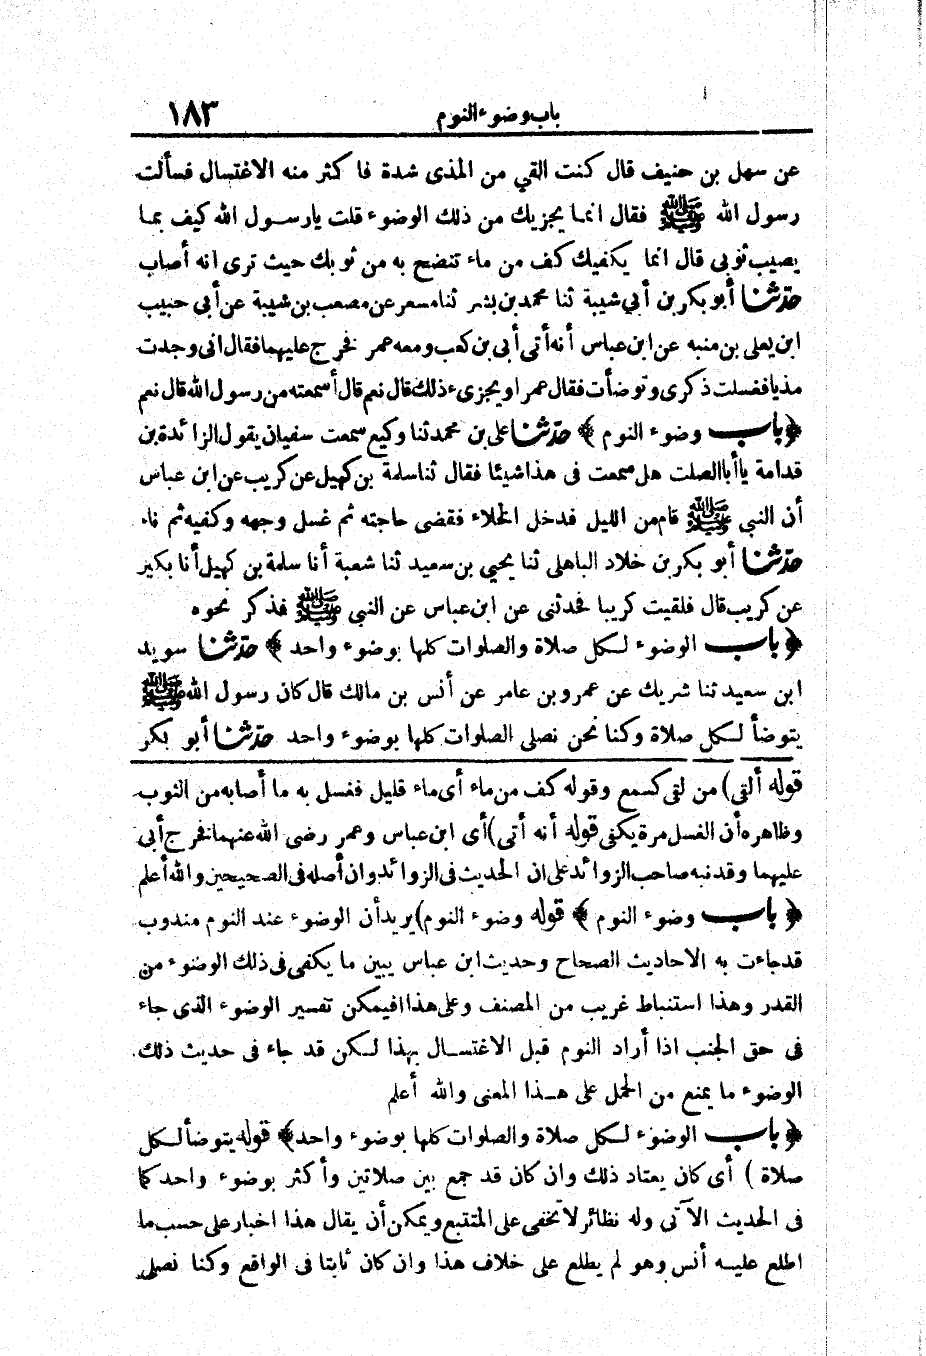 باب وضوء النوم ١٨٣
عن سهل بن حنيف قال كنت القي من المذى شدة فا كثر منه الاغتسال فسألت
رسول الله ﷺ فقال انما يجزيك من ذلك الوضوء قلت يارسول الله كيف بما
يصيب ثوبى قال انما يكفيك كف من ماء تنضح به من ثوبك حيث ترى انه أصاب
حدّثنا أبو بكر بن أبي شيبة ثنا محمد بن بشر ثنا مسعر عن مصعب بن شيبة عن أبي حبيب
ابن يعلى بن منبه عن ابن عباس أنه أتى أبي بن كعب ومعه عمر فخرج عليهما فقال انى وجدت
مذيا فغسلت ذكرى وتوضأت فقال عمر او يجزىء ذلك قال نعم قال أسمعته من رسول الله قال نعم
﴿باب وضوء النوم﴾ حدّثنا على بن محمد ثنا وكيع سمعت سفيان يقول الزائدة بن
قدامة ياأباالصلت هل سمعت فى هذا شيئا فقال ثنا سلمة بن كهيل عن كريب عن ابن عباس
أن النبي ﷺ قام من الليل فدخل الخلاء فقضى حاجته ثم غسل وجهه وكفيه ثم نام
حدّثنا أبو بكر بن خلاد الباهلى ثنا يحيي بن سعيد ثنا شعبة أنا سلمة بن كهيل أنا بكير
عن كريب قال فلقيت كريبا فحدثنى عن ابن عباس عن النبي ﷺ فذكر نحوه
﴿باب الوضوء لكل صلاة والصلوات كلها بوضوء واحد﴾ حدّثنا سويد
ابن سعيد ثنا شريك عن عمرو بن عامر عن أنس بن مالك قال كان رسول الله ﷺ
يتوضأ لكل صلاة وكنا نحن نصلى الصلوات كلها بوضوء واحد حدّثنا أبو بكر
قوله ألقي) من لقى كسمع وقوله كف من ماء أى ماء قليل فغسل به ما أصابه من الثوب
وظاهره أن الغسل مرة يكفى قوله أنه أتى) أى ابن عباس وعمر رضى الله عنهما فخرج أبى
عليهما وقد نبه صاحب الزوائد على ان الحديث فى الزوائد وان أصله فى الصحيحين والله أعلم
﴿باب وضوء النوم﴾ قوله وضوء النوم) يريد أن الوضوء عند النوم مندوب
قدجاءت به الاحاديث الصحاح وحديث ابن عباس يبين ما يكفى فى ذلك الوضوء من
القدر وهذا استنباط غريب من المصنف وعلى هذا افيمكن تفسير الوضوء الذى جاء
فى حق الجنب اذا أراد النوم قبل الاغتسال بهذا لكن قد جاء فى حديث ذلك
الوضوء ما يمنع من الحمل على هذا المعنى والله أعلم
﴿باب الوضوء لكل صلاة والصلوات كلها بوضوء واحد﴾ قوله يتوضأ لكل
صلاة) أى كان يعتاد ذلك وان كان قد جمع بين صلاتين وأكثر بوضوء واحد كما
فى الحديث الآتى وله نظائر لا تخفى على المتتبع ويمكن أن يقال هذا اخبار على حسب ما
اطلع عليه أنس وهو لم يطلع على خلاف هذا وان كان ثابتا فى الواقع وكنا نصلى